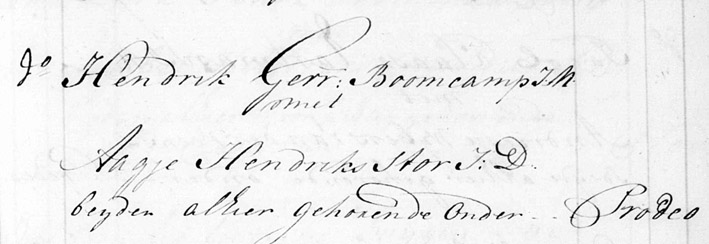 do Hendrik Gerr: Boomcamp J:M
met
Aagje Hendriks Stor J:D.
beyden alhier gehorende onder -- Prodeo